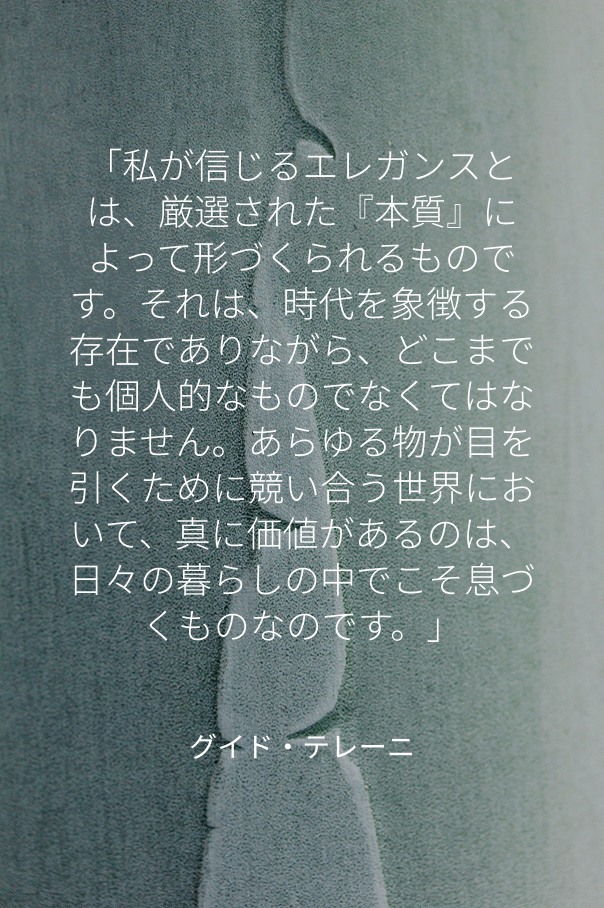 「私が信じるエレガンスと
は、厳選された『本質』に
よって形づくられるもので
す。それは、時代を象徴する
存在でありながら、どこまで
も個人的なものでなくてはな
りません。あらゆる物が目を
引くために競い合う世界にお
いて、真に価値があるのは、
日々の暮らしの中でこそ息づ
くものなのです。」
グイド・テレーニ